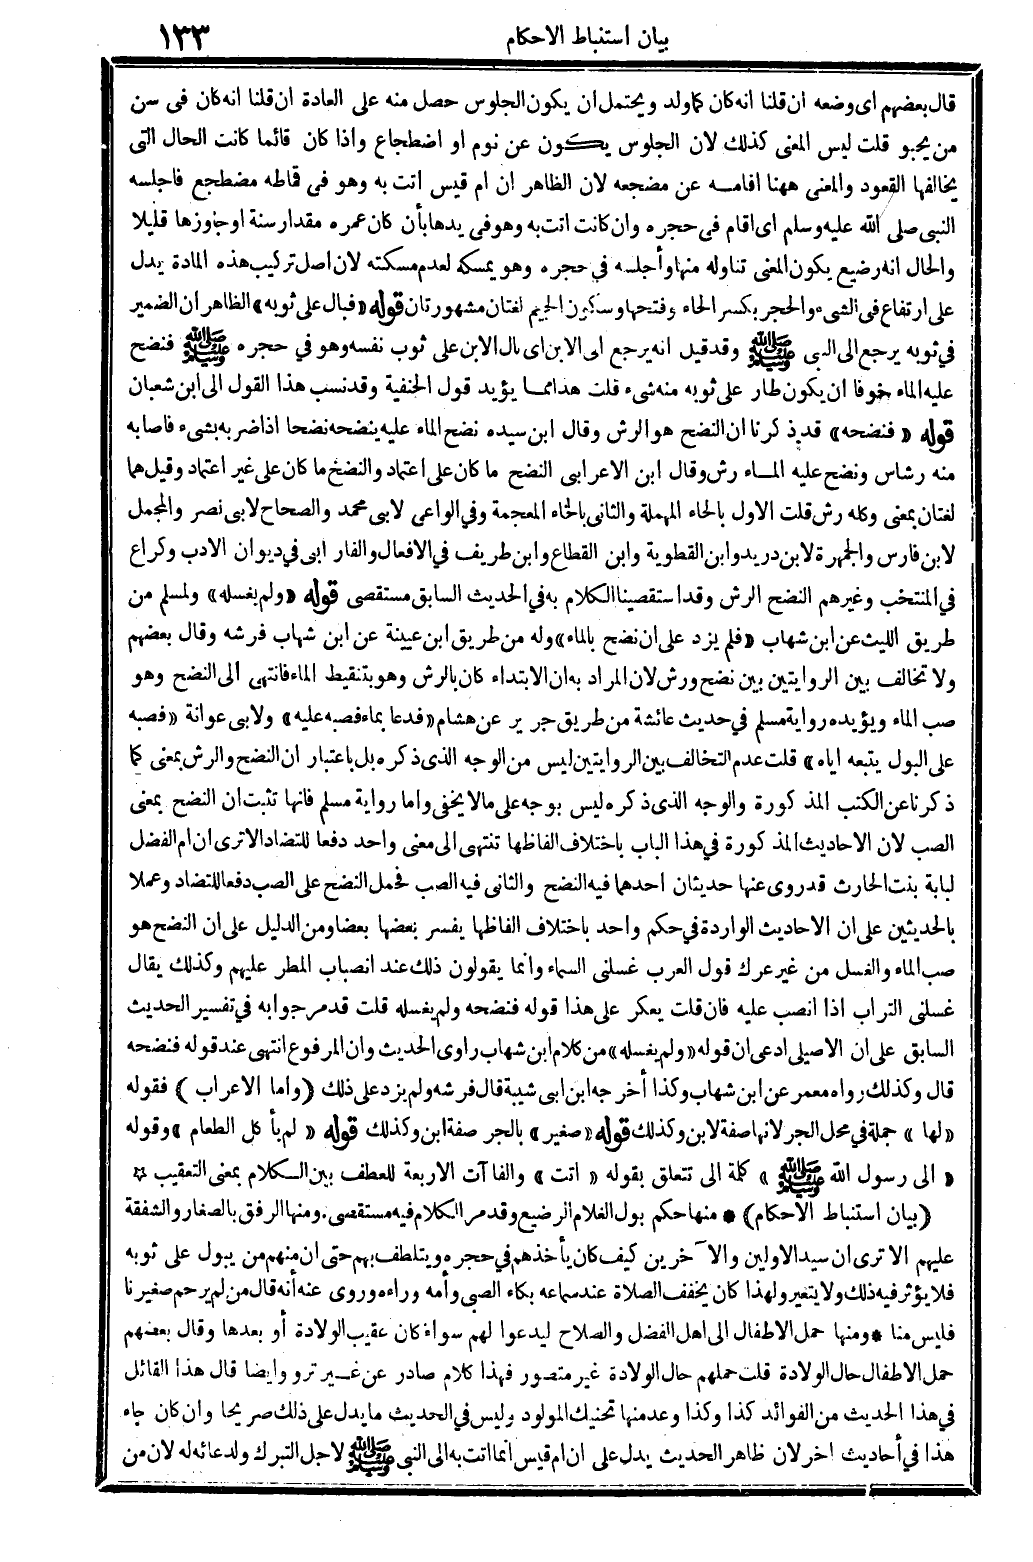 بيان استنباط الاحكام ١٣٣
قال بعضهم اى وضعه ان قلنا انه كان كما ولد ويحتمل ان يكون الجلوس حصل منه على العادة ان قلنا انه كان فى سن
من يحبو قلت ليس المعنى كذلك لان الجلوس يكون عن نوم او اضطجاع واذا كان قائما كانت الحال التى
يخالفها القعود والمعنى ههنا اقامه عن مضجعه لان الظاهر ان ام قيس اتت به وهو فى قماطه مضطجع فاجلسه
النبى صلى الله عليه وسلم اى اقام فى حجره وان كانت اتت به وهو فى يدها بأن كان عمره مقدار سنة او جاوزها قليلا
والحال انه رضيع يكون المعنى تناوله منها وأجلسه في حجره وهو يمسكه لعدم مسكته لان اصل تركيب هذه المادة يدل
على ارتفاع فى الشىء والحجر بكسر الحاء وفتحها وسكون الجيم لغتان مشهورتان قوله «فبال على ثوبه» الظاهر ان الضمير
في ثوبه يرجع الى النبى ﷺ وقد قيل انه يرجع الى الابن اى بال الابن على ثوب نفسه وهو في حجره ﷺ فنضح
عليه الماء خوفا ان يكون طار على ثوبه منه شىء قلت هذا مما يؤيد قول الحنفية وقد نسب هذا القول الى ابن شعبان
قوله «فنضحه» قد ذكرنا ان النضح هو الرش وقال ابن سيده نضح الماء عليه ينضحه نضحا اذا ضربه بشىء فاصابه
منه رشاس ونضح عليه الماء رش وقال ابن الاعرابى النضح ما كان على اعتماد والنضخ ما كان على غير اعتماد وقيل هما
لغتان بمعنى وكله رش قلت الاول بالحاء المهملة والثانى بالخاء المعجمة وفي الواعى لابى محمد والصحاح لابى نصر والمجمل
لابن فارس والجمهرة لابن دريد وابن القطوية وابن القطاع وابن طريف في الافعال والفارابى في ديوان الادب وكراع
في المنتخب وغيرهم النضح الرش وقد استقصينا الكلام به في الحديث السابق مستقصى قوله «ولم يغسله» ولمسلم من
طريق الليث عن ابن شهاب «فلم يزد على ان نضح بالماء» وله من طريق ابن عيينة عن ابن شهاب فرشه وقال بعضهم
ولا تخالف بين الروايتين بين نضح ورش لان المراد به ان الابتداء كان بالرش وهو بتنقيط الماء فانتهى الى النضح وهو
صب الماء ويؤيده رواية مسلم في حديث عائشة من طريق جرير عن هشام «فدعا بماء فصبه عليه» ولابى عوانة «فصبه
على البول يتبعه اياه» قلت عدم التخالف بين الروايتين ليس من الوجه الذى ذكره بل باعتبار ان النضح والرش بمعنى كما
ذكرنا عن الكتب المذكورة والوجه الذى ذكره ليس بوجه على ما لا يخفى واما رواية مسلم فانها تثبت ان النضح بمعنى
الصب لان الاحاديث المذكورة في هذا الباب باختلاف الفاظها تنتهى الى معنى واحد دفعا للتضاد الا ترى ان ام الفضل
لبابة بنت الحارث قد روى عنها حديثان احدهما فيه النضح والثانى فيه الصب فحمل النضح على الصب دفعا للتضاد وعملا
بالحديثين على ان الاحاديث الواردة في حكم واحد باختلاف الفاظها يفسر بعضها بعضا ومن الدليل على ان النضح هو
صب الماء والغسل من غير عرك قول العرب غسلنى السماء وانما يقولون ذلك عند انصباب المطر عليهم وكذلك يقال
غسلنى التراب اذا انصب عليه فان قلت يعكر على هذا قوله فنضحه ولم يغسله قلت قد مر جوابه في تفسير الحديث
السابق على ان الاصيلى ادعى ان قوله «ولم يغسله» من كلام ابن شهاب راوى الحديث وان المرفوع انتهى عند قوله فنضحه
قال وكذلك رواه معمر عن ابن شهاب وكذا أخرجه ابن ابى شيبة قال فرشه ولم يزد على ذلك (واما الاعراب) فقوله
«لها» جملة في محل الجر لانها صفة لابن وكذلك قوله «صغير» بالجر صفة ابن وكذلك قوله «لم يأكل الطعام» وقوله
«الى رسول الله ﷺ» كلمة الى تتعلق بقوله «اتت» والفاآت الاربعة للعطف بين الكلام بمعنى التعقيب ✩
(بيان استنباط الاحكام) * منها حكم بول الغلام الرضيع وقد مر الكلام فيه مستقصى. ومنها الرفق بالصغار والشفقة
عليهم الا ترى ان سيد الاولين والآخرين كيف كان يأخذهم في حجره ويتلطف بهم حتى ان منهم من يبول على ثوبه
فلا يؤثر فيه ذلك ولا يتغير ولهذا كان يخفف الصلاة عند سماعه بكاء الصبى وأمه وراءه وروى عنه أنه قال من لم يرحم صغيرنا
فليس منا * ومنها حمل الاطفال الى اهل الفضل والصلاح ليدعوا لهم سواء كان عقيب الولادة أو بعدها وقال بعضهم
حمل الاطفال حال الولادة قلت حملهم حال الولادة غير متصور فهذا كلام صادر عن غير ترو وايضا قال هذا القائل
في هذا الحديث من الفوائد كذا وكذا وعد منها تحنيك المولود وليس في الحديث ما يدل على ذلك صريحا وان كان جاء
هذا في أحاديث اخر لان ظاهر الحديث يدل على ان ام قيس انما اتت به الى النبى ﷺ لاجل التبرك ولدعائه له لان من